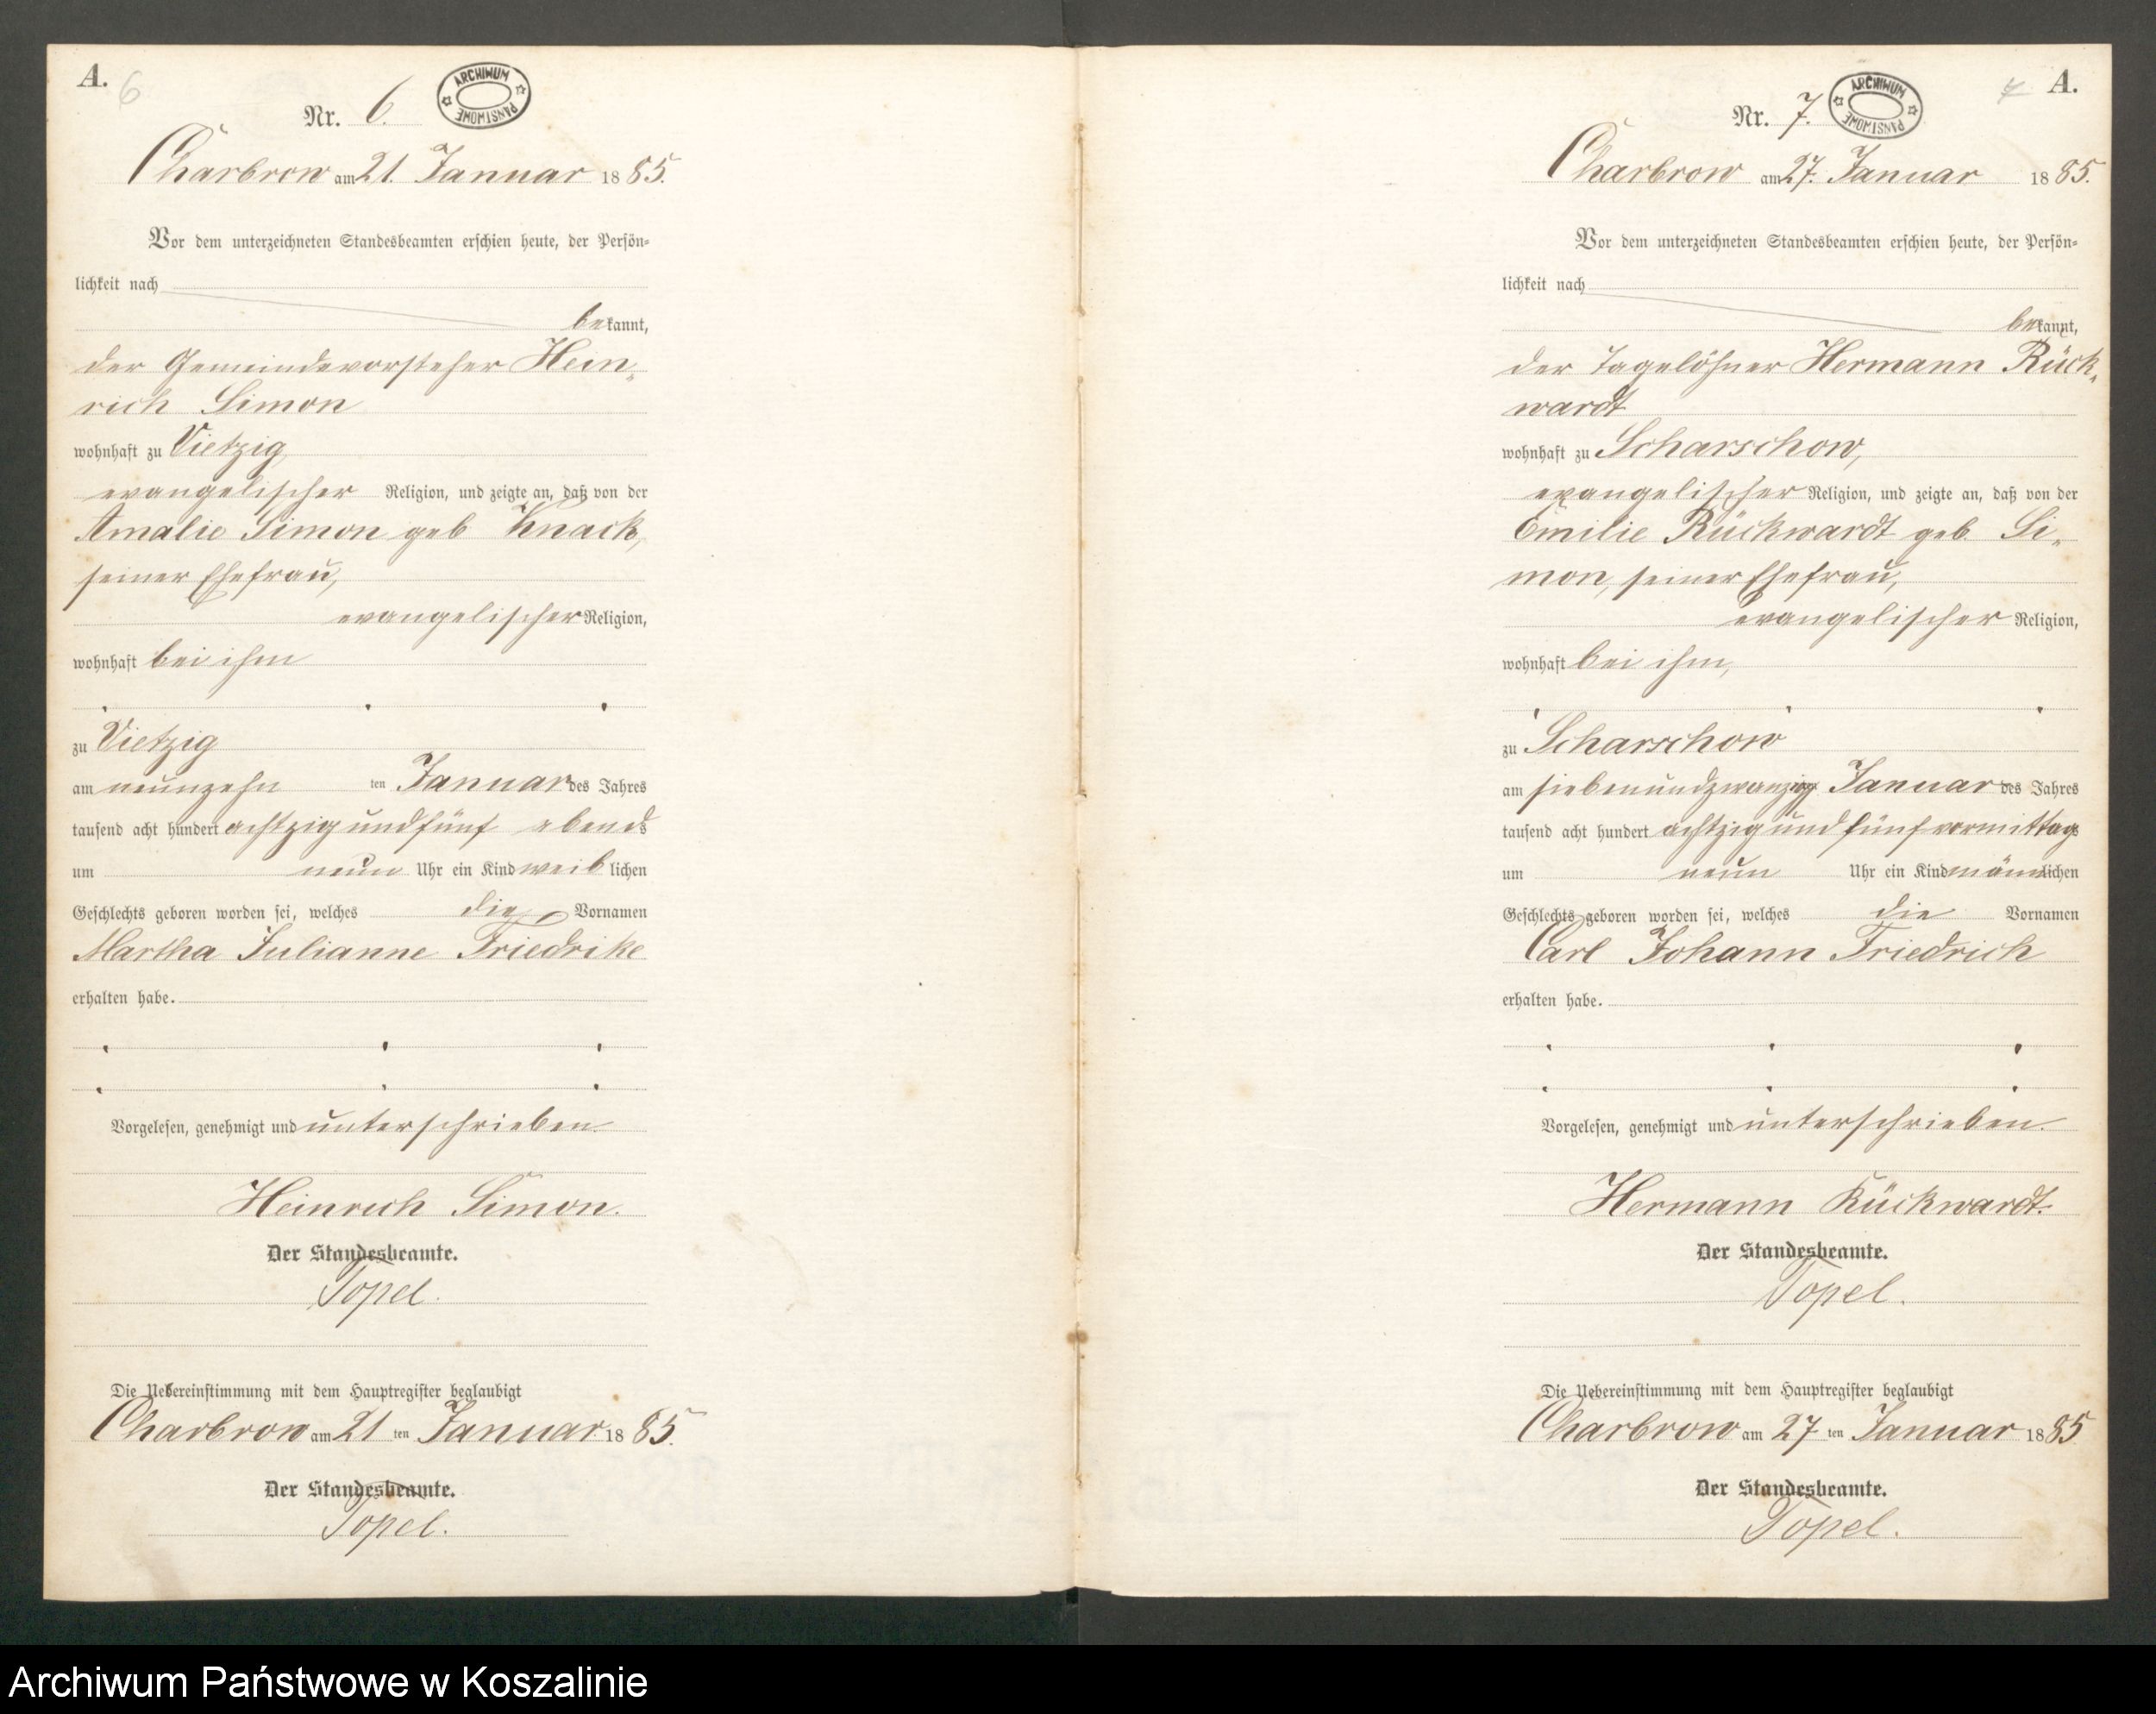 A. 6
ARCHIWUM PAŃSTWOWE
Nr. 6.
Charbrow am 21. Januar 1885.
Vor dem unterzeichneten Standesbeamten erschien heute, der Persön-
lichkeit nach
bekannt,
der Gemeindevorsteher Hein-
rich Simon
wohnhaft zu Vietzig
evangelischer Religion, und zeigte an, daß von der
Amalie Simon geb Knack,
seiner Ehefrau,
evangelischer Religion,
wohnhaft bei ihm
zu Vietzig
am neunzehn ten Januar des Jahres
tausend acht hundert achtzig und fünf abends
um neun Uhr ein Kind weiblichen
Geschlechts geboren worden sei, welches die Vornamen
Martha Julianne Friedrike
erhalten habe.
Vorgelesen, genehmigt und unterschrieben.
Heinrich Simon.
Der Standesbeamte.
Topel.
Die Uebereinstimmung mit dem Hauptregister beglaubigt
Charbrow am 21 ten Januar 1885.
Der Standesbeamte.
Topel.
7 A.
ARCHIWUM PAŃSTWOWE
Nr. 7.
Charbrow am 27. Januar 1885.
Vor dem unterzeichneten Standesbeamten erschien heute, der Persön-
lichkeit nach
bekannt,
der Tagelöhner Hermann Rück-
wardt
wohnhaft zu Scharschow,
evangelischer Religion, und zeigte an, daß von der
Emilie Rückwardt geb. Si-
mon, seiner Ehefrau,
evangelischer Religion,
wohnhaft bei ihm,
zu Scharschow
am siebenundzwanzigten Januar des Jahres
tausend acht hundert achtzig und fünf vormittags
um neun Uhr ein Kind männlichen
Geschlechts geboren worden sei, welches die Vornamen
Carl Johann Friedrich
erhalten habe.
Vorgelesen, genehmigt und unterschrieben.
Hermann Rückwardt.
Der Standesbeamte.
Topel.
Die Uebereinstimmung mit dem Hauptregister beglaubigt
Charbrow am 27 ten Januar 1885
Der Standesbeamte.
Topel.
Archiwum Państwowe w Koszalinie